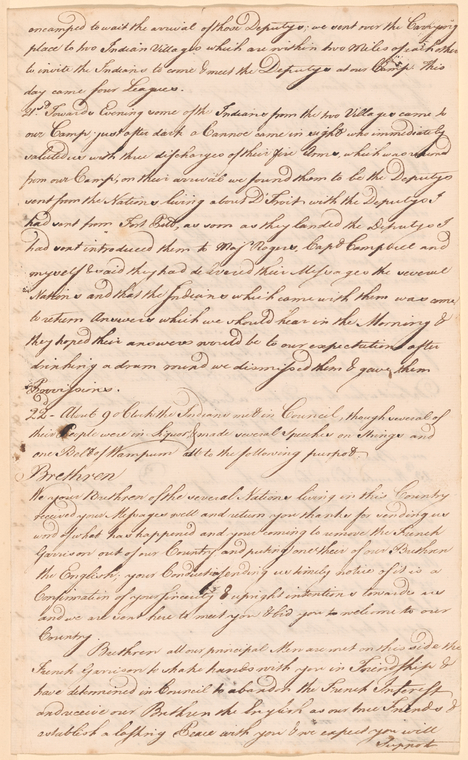 encamped to wait the arrival of those Deputys; we sent over the Carrying
place to two Indian Villages which are within two Miles of each other
to invite the Indians to come & meet the Deputys at our Camp This
day came four Leagues.
21st. Towards Evening some of the Indians from the two Villages came to
our Camp. just after dark a Cannoe came in sight who immediately
saluted us with three discharges of their fire Arms, which was returned
from our Camp, on their arrival we found them to be the Deputys
sent from the Nations living about D'Troit with the Deputys I
had sent from Fort Pitt, as soon as they landed the Deputys I
had sent introduced them to Majr. Rogers, Capt. Campbell and
myself & said they had delivered their Messages the several
Nations and that the Indians which came with them was come
to return Answers which we should hear in the Morning &
they hoped their answers would be to our expectations, after
drinking a dram round we dismissed them & gave them
Provisions.
22d. About 9 o'Clock the Indians met in Council, though several of
their People were in liquor & made several Speeches on Strings and
one Belt of Wampum all to the following purport.
Brethren
We your Brethren of the several Nations living in this Country
received your Messages well and return you thanks for sending us
word of what has happened and your coming to remove the French
Garrison out of our Country and putting one there of our Brethren
the English; your Conduct sending us timely notice of it is a
Confirmation of your sincerity & upright intentions towards us
and we are sent here to meet you & bid you to welcome to our
Country
Brethren all our principal Men are met on this side the
French Garrison to shake hands with you in Friendship &
have determined in Council to abandon the French Interest
and receive our Brethren the English as our true Friends &
establish a lasting Peace with you & we expect you will
Support